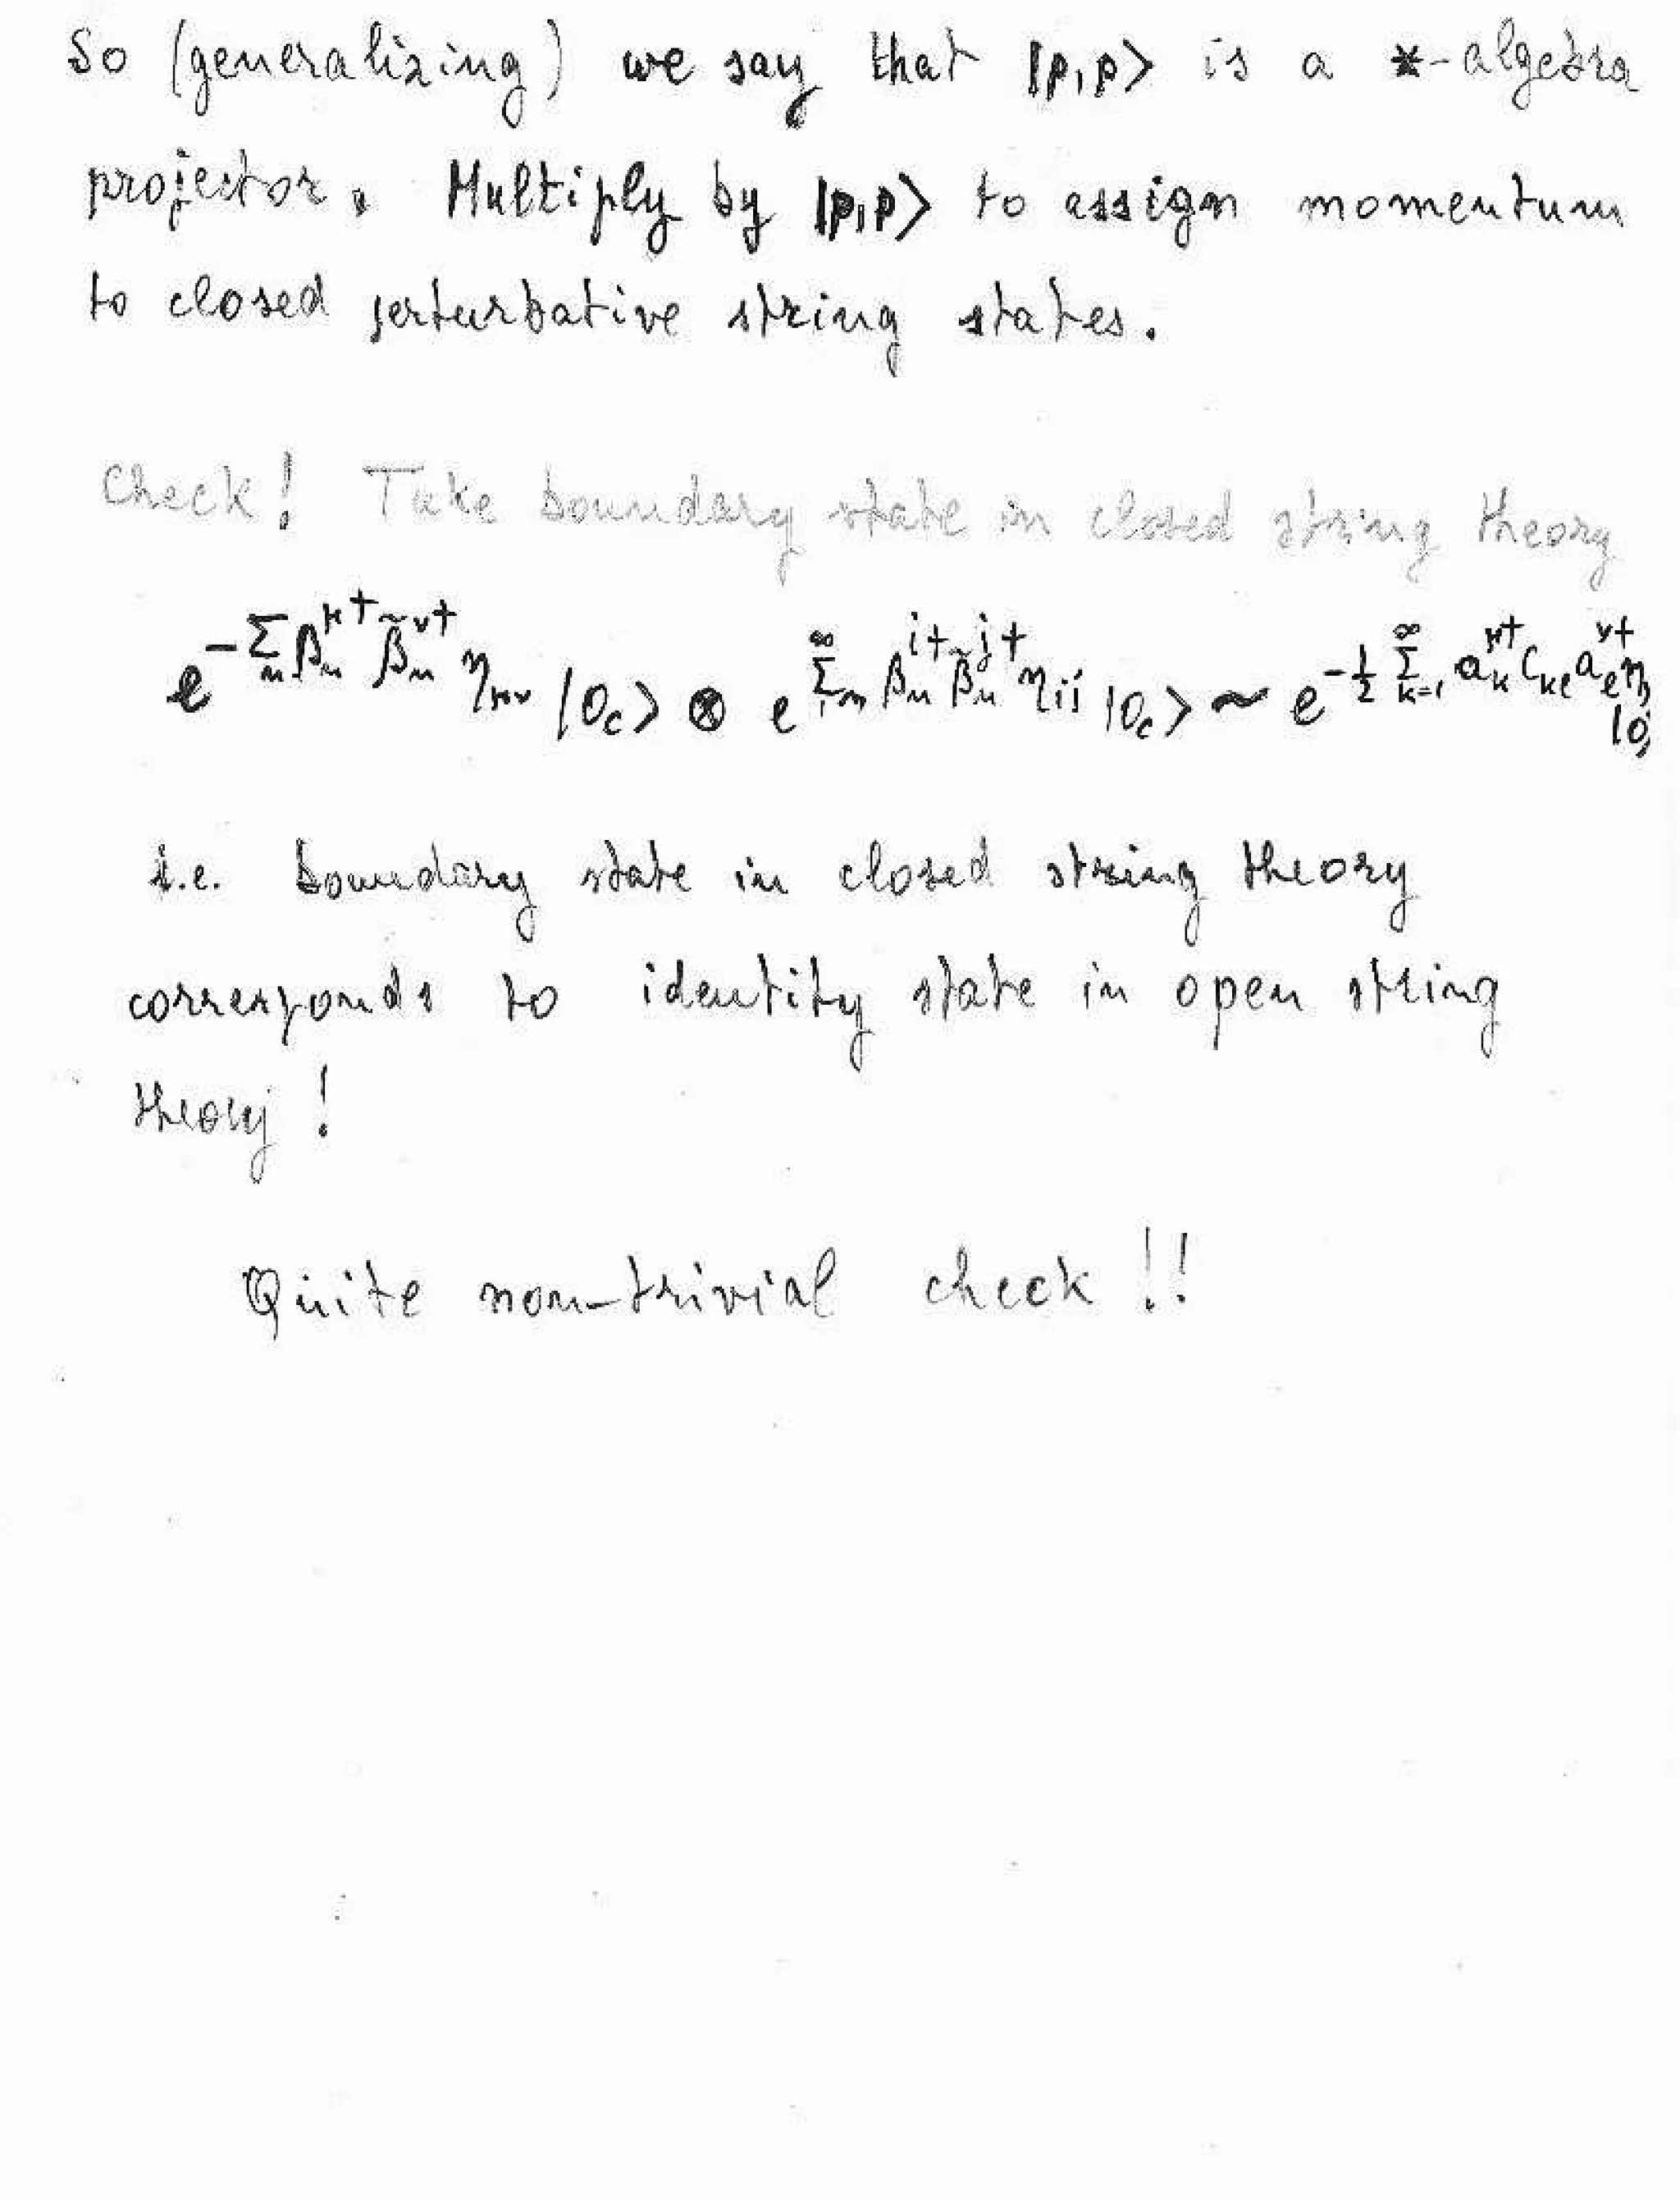 So (generalizing) we say that |p,p> is a *-algebra
projector. Multiply by |p,p> to assign momentum
to closed perturbative string states.
Check! Take boundary state in closed string theory
e^{-Σ_n β_n^{μ†} β̃_n^{ν†} η_{μν}} |0_c> ⊗ e^{Σ_n^∞ β_n^{i†} β̃_n^{j†} η_{ij}} |0_c> ~ e^{-½ Σ_{k=1}^∞ a_k^{μ†} C_{kl} a_l^{ν†} η} |0>
i.e. boundary state in closed string theory
corresponds to identity state in open string
theory!
Quite non-trivial check!!